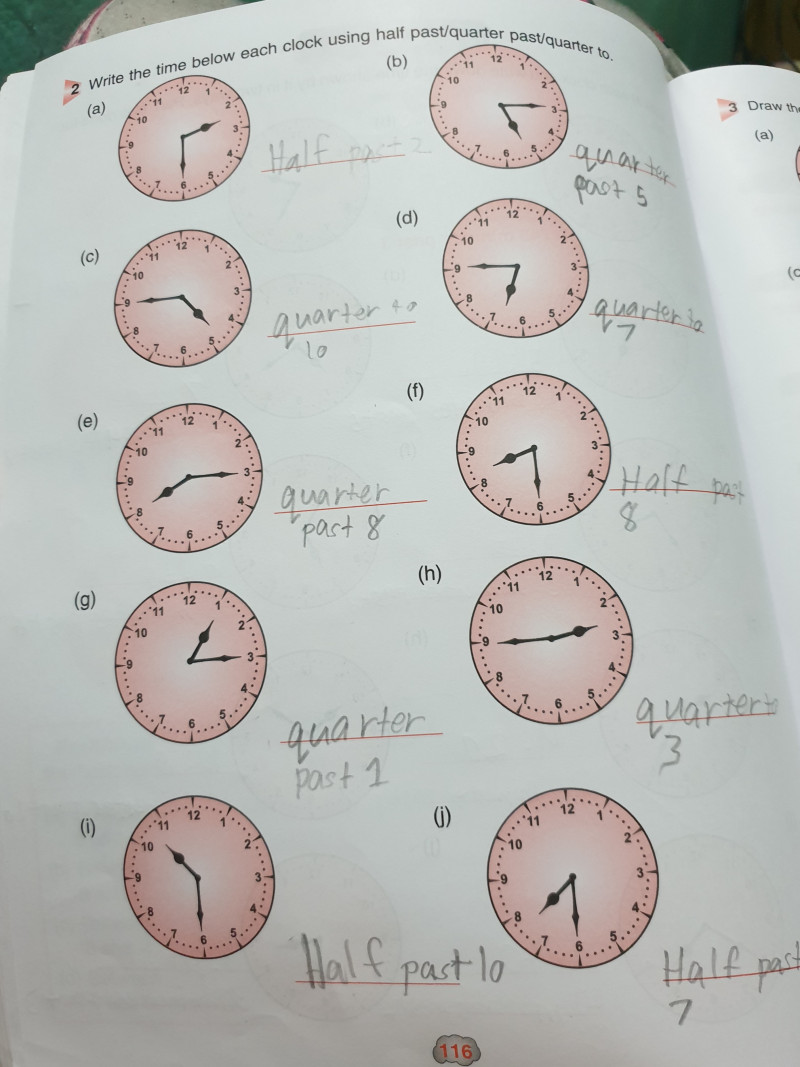 2 Write the time below each clock using half past/quarter past/quarter to.
(a)
12 1 2 3 4 5 6 7 8 9 10 11
Half past 2
(b)
12 1 2 3 4 5 6 7 8 9 10 11
quarter
past 5
(c)
12 1 2 3 4 5 6 7 8 9 10 11
quarter to
10
(d)
12 1 2 3 4 5 6 7 8 9 10 11
quarter to
7
(e)
12 1 2 3 4 5 6 7 8 9 10 11
quarter
past 8
(f)
12 1 2 3 4 5 6 7 8 9 10 11
Half past
8
(g)
12 1 2 3 4 5 6 7 8 9 10 11
quarter
past 1
(h)
12 1 2 3 4 5 6 7 8 9 10 11
quarter to
3
(i)
12 1 2 3 4 5 6 7 8 9 10 11
Half past 10
(j)
12 1 2 3 4 5 6 7 8 9 10 11
Half past
7
116
3 Draw
(a)